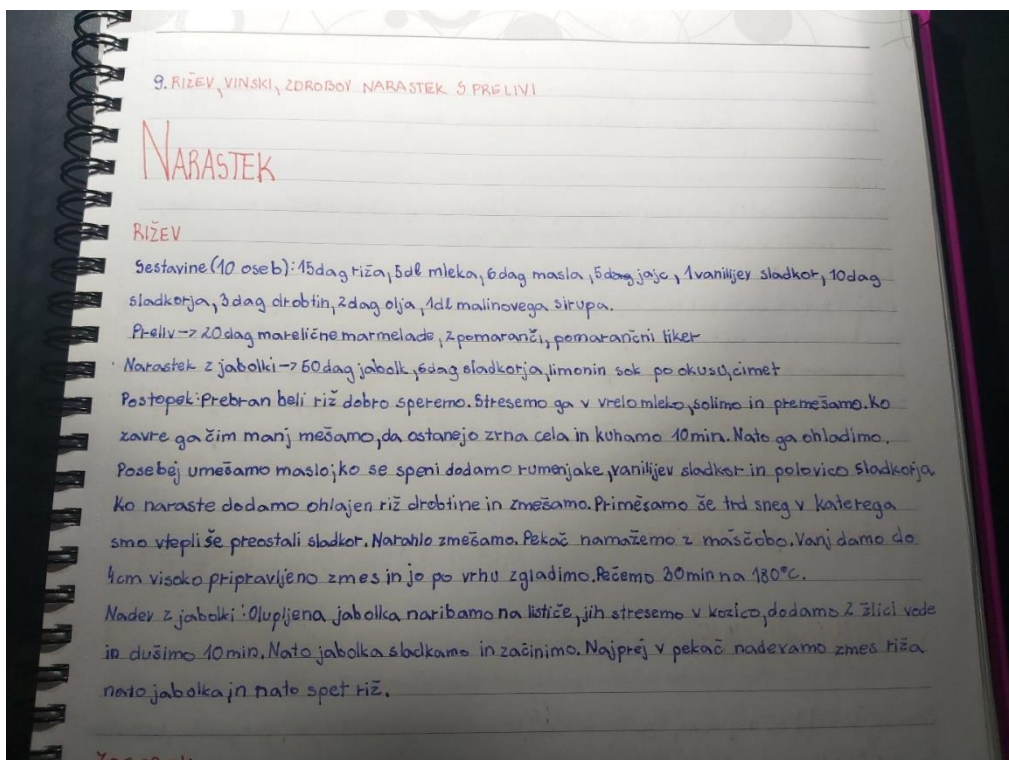 9. RIŽEV, VINSKI, ZDROBOV NARASTEK S PRELIVI
NARASTEK
RIŽEV
Sestavine (10 oseb): 15dag riža, 5dl mleka, 6dag masla, 5 jajc, 1 vanilijev sladkor, 10dag
sladkorja, 3dag drobtin, 2dag olja, 1dl malinovega sirupa.
Preliv -> 20dag marelične marmelade, 2 pomaranči, pomarančni liker
Narastek z jabolki -> 60dag jabolk, 6dag sladkorja, limonin sok po okusu, cimet
Postopek: Prebran beli riž dobro speremo. Stresemo ga v vrelo mleko, solimo in premešamo. Ko
zavre ga čim manj mešamo, da ostanejo zrna cela in kuhamo 10min. Nato ga ohladimo.
Posebej umešamo maslo; ko se speni dodamo rumenjake, vanilijev sladkor in polovico sladkorja
Ko naraste dodamo ohlajen riž drobtine in zmešamo. Primešamo še trd sneg v katerega
smo vtepli še preostali sladkor. Narahlo zmešamo. Pekač namažemo z maščobo. Vanj damo do
4cm visoko pripravljeno zmes in jo po vrhu zgladimo. Pečemo 30min na 180°C.
Nadev z jabolki: Olupljena jabolka naribamo na lističe, jih stresemo v kozico, dodamo 2 žlici vode
in dušimo 10min. Nato jabolka sladkamo in začinimo. Najprej v pekač nadevamo zmes riža
nato jabolka in nato spet riž.